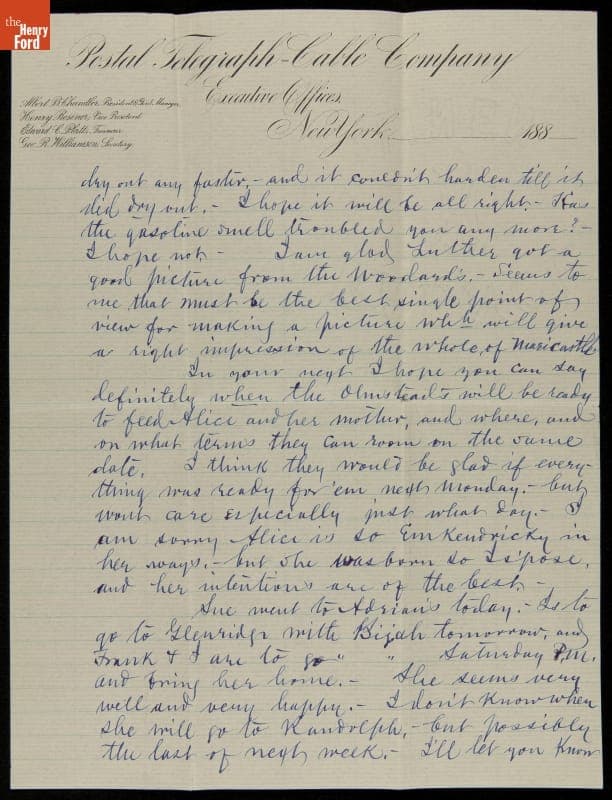 the
Henry
Ford
Postal Telegraph-Cable Company
Executive Offices.
Albert B. Chandler, President & Genl. Manager,
Henry Rosener, Vice President
Edward C. Platt, Treasurer
Geo. R. Williamson, Secretary
New York, 188
dry out any faster,- and it couldn't harden till it
did dry out.- I hope it will be all right.- Has
the gasoline smell troubled you any more?-
I hope not- I am glad Luther got a
good picture from the Woodard's.- Seems to
me that must be the best single point of
view for making a picture whh will give
a right impression of the whole, of Maricastle
In your next I hope you can say
definitely when the Olmsteads will be ready
to feed Alice and her mother, and where, and
on what terms they can room on the same
date. I think they would be glad if every-
thing was ready for 'em next Monday.- but
wont care especially just what day.- I
am sorry Alice is so Emkendricky in
her ways.- but she was born so I s'pose,
and her intentions are of the best.-
She went to Adrian's today.- Is to
go to Glenridge with Bijah tomorrow, and
Frank & I are to go " " Saturday P.M.
and bring her home.- She seems very
well and very happy.- I don't know when
she will go to Randolph,- but possibly
the last of next week.- I'll let you know